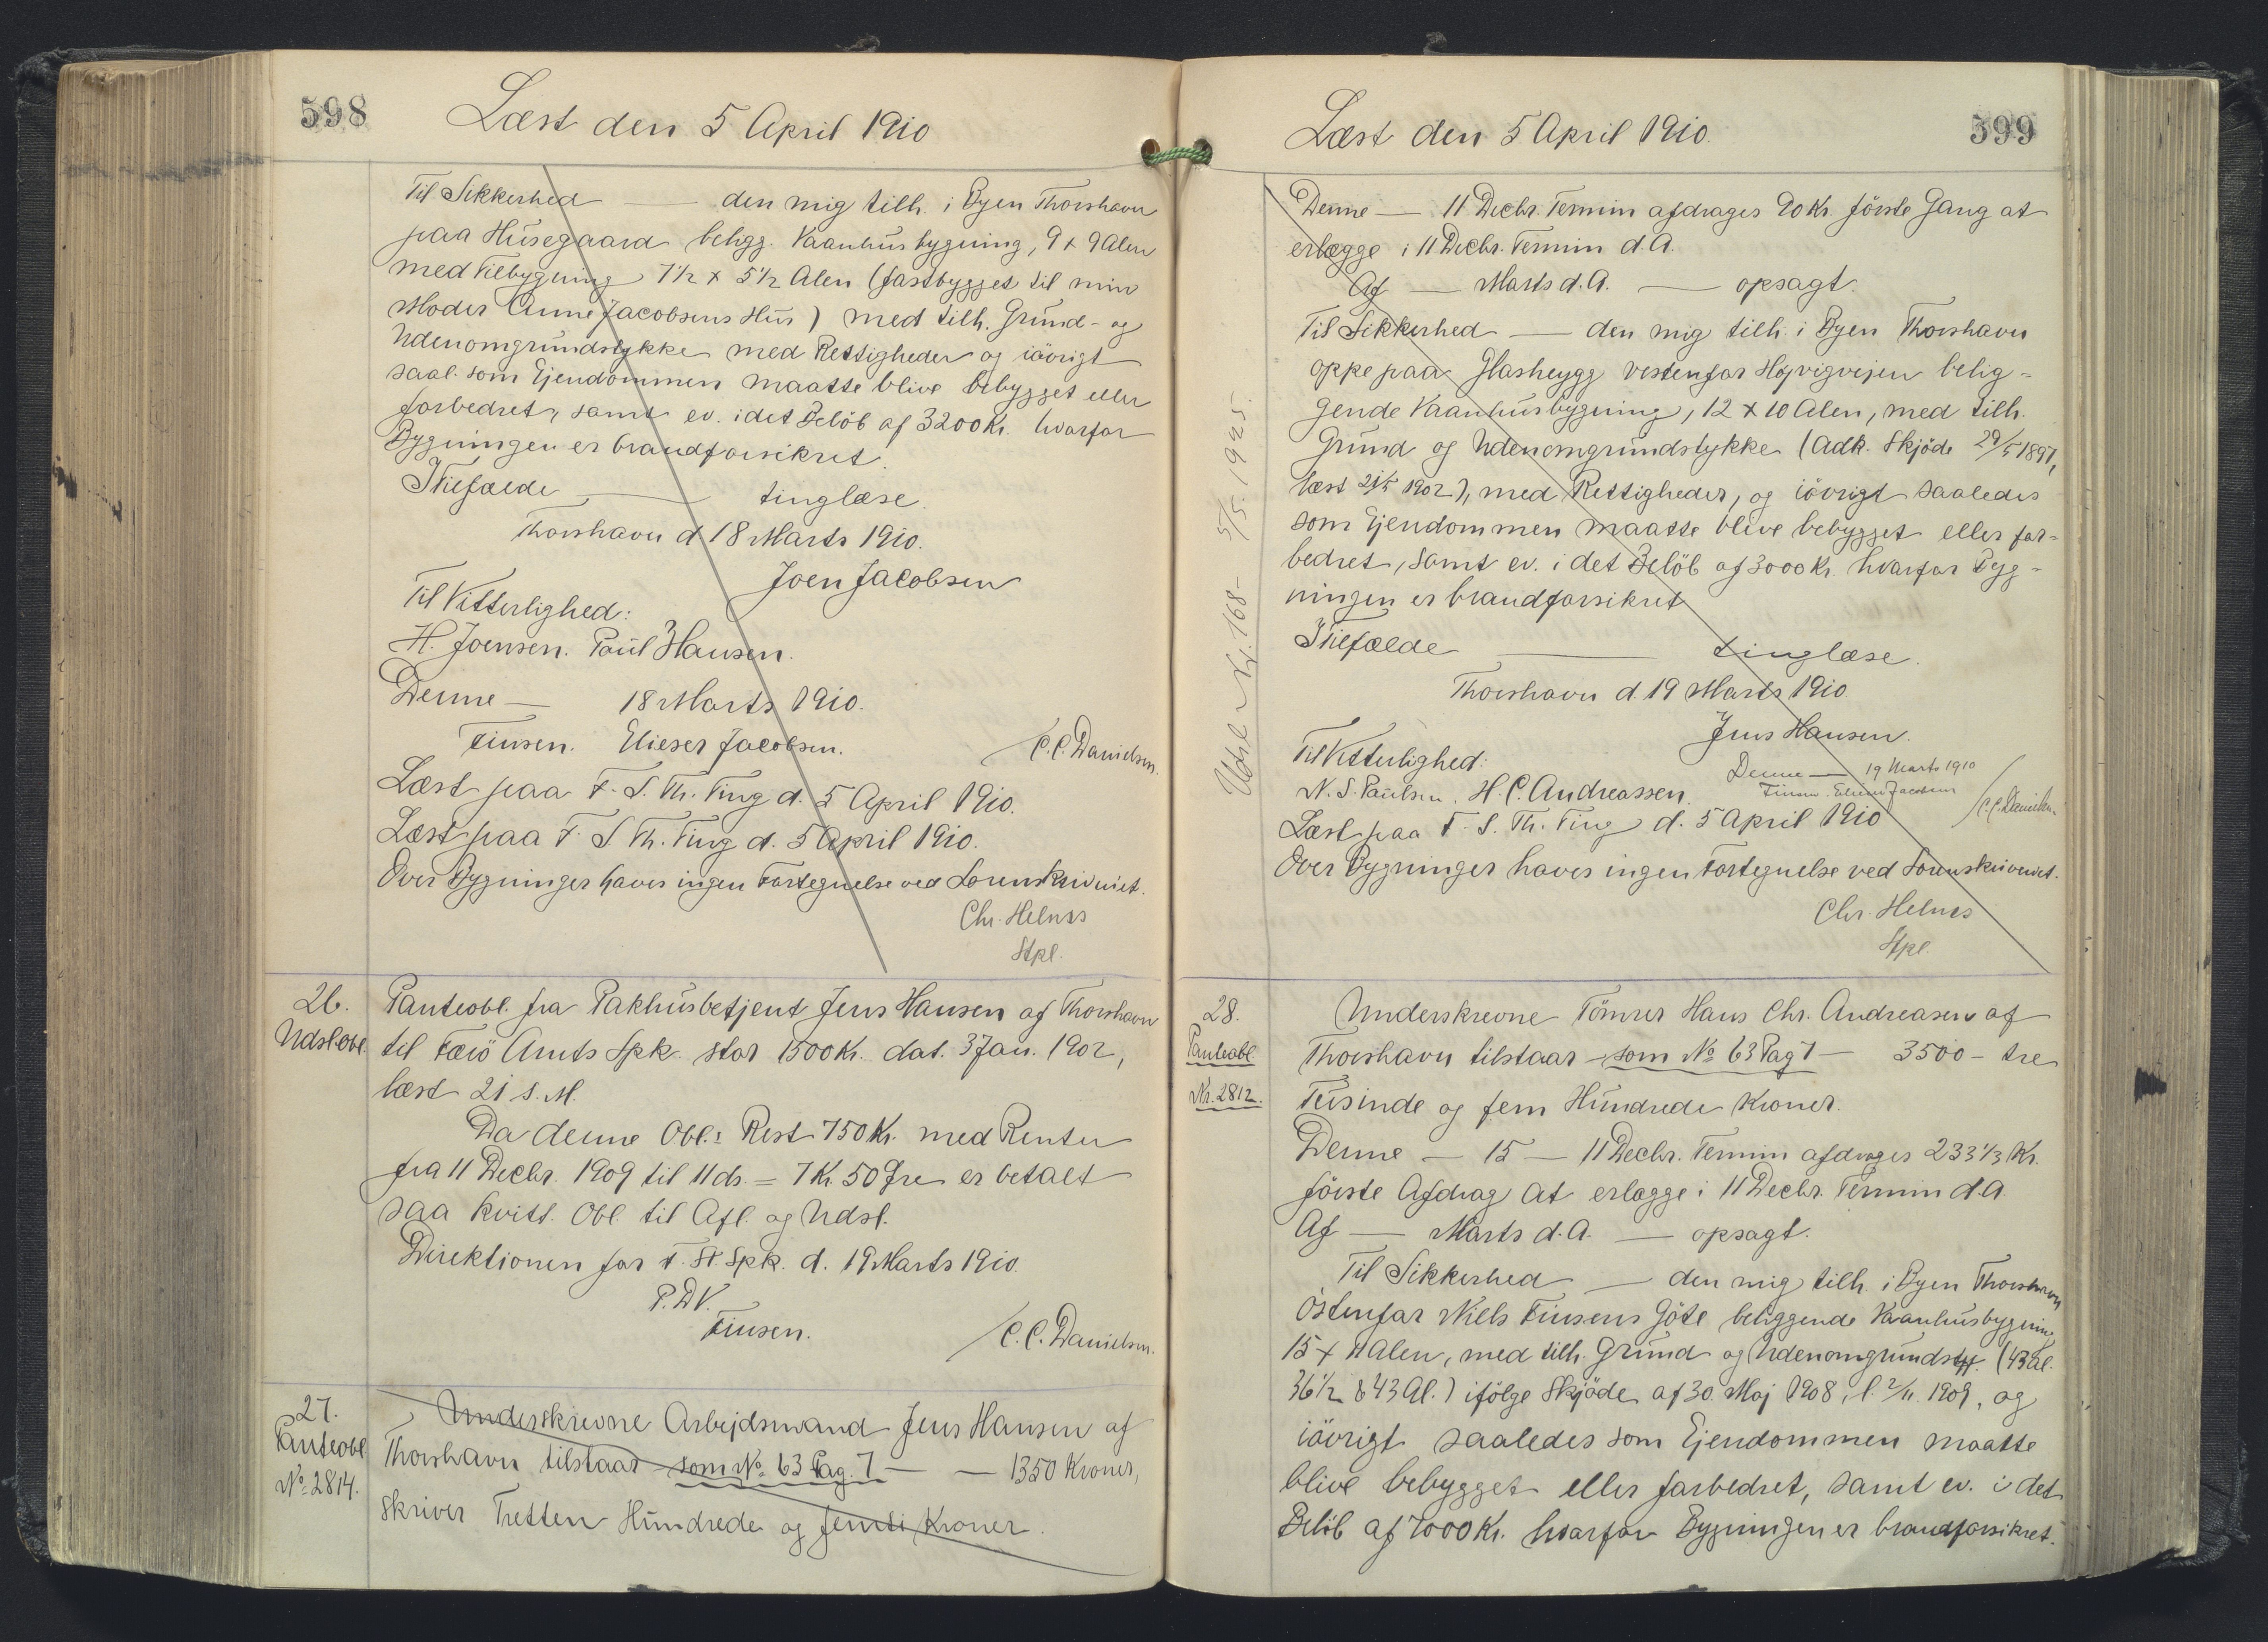 598
Læst den 5 April 1910
Til Sikkerhed — den mig tilh. i Byen Thorshavn
paa Húsegaard beligg. Vaanhúsbygning, 9 x 9 Alen
med Tilbygning 7½ x 5½ Alen (fastbygget til min
Moder Anne Jacobsens Hús) med tilh. Grúnd- og
Udenomgrúndstykke med Rettigheder og iövrigt
saal. som Ejendommen maatte blive bebygget eller
forbedret, samt ev. i det Belöb af 3200 Kr. hvorfor
Bygningen er brandforsikret.
I Tilfælde — tinglæse.
Thorshavn d. 18 Marts 1910.
Joen Jacobsen
Til Vitterlighed:
H. Joensen. Paúl Hansen.
Denne — 18 Marts 1910.
Finsen. Elieser Jacobsen.
/C.C. Danielsen.
Læst paa F. S. Th. Ting d. 5 April 1910.
Læst paa F. S Th. Ting d. 5 April 1910.
Over Bygninger haves ingen Fortegnelse ved Sorenskriveriet.
Chr. Helnæs
Stpl.
26.
Udsl.Obl.
Panteobl. fra Pakhúsbetjent Jens Hansen af Thorshavn
til Færö Amts Spk. stor 1500 Kr. dat. 3 Jan. 1902,
læst 21 s. M.
Da denne Obl.s Rest 750 Kr. med Renter
fra 11 Decbr. 1909 til 11 ds. = 7 Kr. 50 Öre er betalt
saa kvitt. Obl. til Afl. og Udsl.
Direktionen for F. A. Spk. d. 19 Marts 1910.
P.D.V.
Finsen.
/C.C. Danielsen.
27.
Panteobl
No 2814.
Underskrevne Arbejdsmand Jens Hansen af
Thorshavn tilstaar - som No 63 Pag. 7 — — 1350 Kroner,
skriver Tretten Húndrede og femti Kroner.
599
Læst den 5 April 1910.
Denne — 11 Decbr. Termin afdrages 90 Kr. förste Gang at
erlægge i 11 Decbr. Termin d.A.
Af — Marts d.A. — opsagt.
Til Sikkerhed — den mig tilh. i Byen Thorshavn
oppe paa Glasheygg vestenfor Hojvigvejen belig-
gende Vaanhúsbygning, 12 x 10 Alen, med tilh.
Grúnd og Udenomgrúndstykke (Adk. Skjöde 29/5 1897,
læst 21/5 1902), med Rettigheder, og iövrigt saaledes
som Ejendommen maatte blive bebygget eller for-
bedret, samt ev. i det Belöb af 3000 Kr. hvorfor Byg-
ningen er brandforsikret
I Tilfælde — tinglæse.
Thorshavn d. 19 Marts 1910.
Jens Hansen.
Til Vitterlighed:
N. S. Paúlsen. H. C. Andreassen.
Denne — 19 Marts 1910
Finsen. Elieser Jacobsen
/C.C. Danielsen.
Læst paa F. S. Th. Ting d. 5 April 1910
Over Bygninger haves ingen Fortegnelse ved Sorenskriveriet.
Chr. Helnæs
Stpl.
Udsl Nr. 168 - 5/5. 1925.
28.
Panteobl
Nr. 2812.
Underskrevne Tömrer Hans Chr. Andreasen af
Thorshavn tilstaar - som No 63 Pag 7 — 3500 - tre
Túsinde og fem Húndrede Kroner.
Denne — 15 — 11 Decbr. Termin afdrages 233⅓ Kr.
förste Afdrag at erlægge i 11 Decbr. Termin d.A.
Af — Marts d.A. — opsagt.
Til Sikkerhed — den mig tilh. i Byen Thorshavn
Östenfor Niels Finsens Göte beliggende Vaanhúsbygning
15 x 11 Alen, med tilh. Grúnd og Udenomgrúndst. (43 Al.
36½ & 43 Al.) ifölge Skjöde af 30. Maj 1908, l. 2/11. 1909, og
iövrigt saaledes som Ejendommen maatte
blive bebygget eller forbedret, samt ev. i det
Belöb af 7000 Kr. hvorfor Bygningen er brandforsikret.